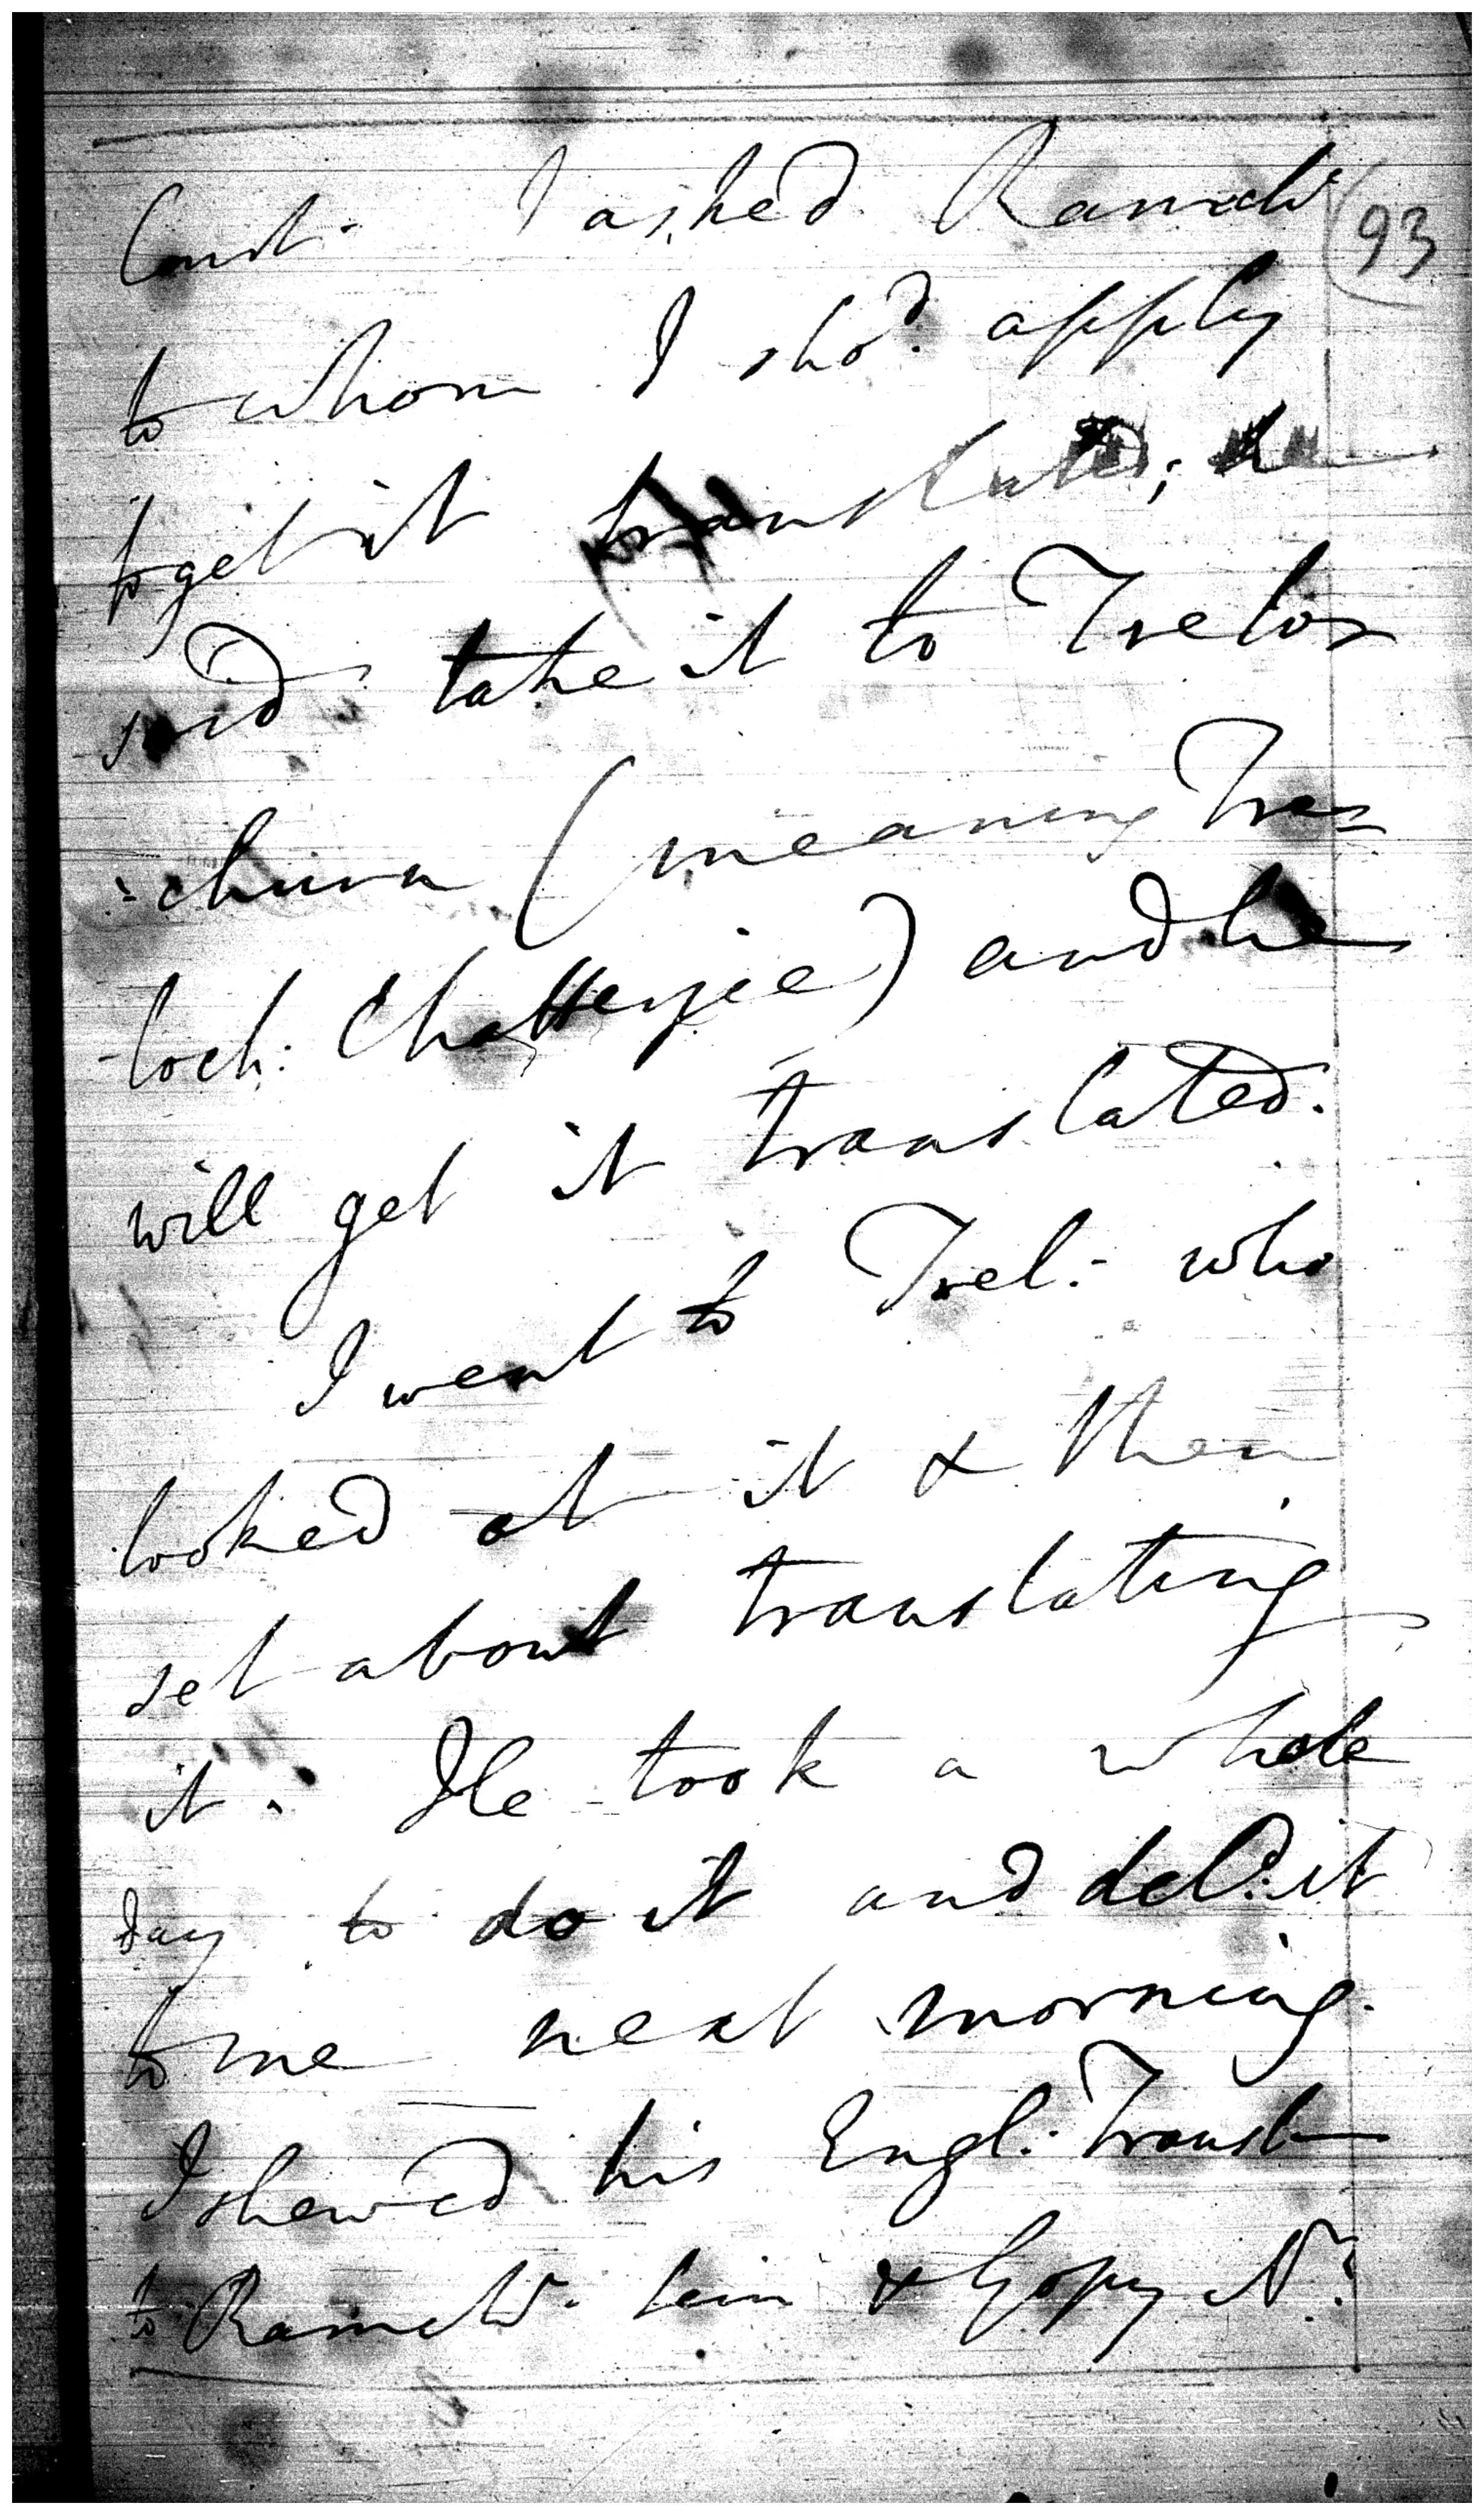 Court. I asked Ramdr (93
to whom I shod. apply
to get it translated; he
said take it to Trelos
=chun (meaning Tre=
-loch: Chatterjee) and he
will get it translated.
I went to Trel:- who
looked at it & then
set about translating
it. He took a whole
day to do it and deld: it
to me next morning.
I shewed his Engl: Transl
to & Gopy N: